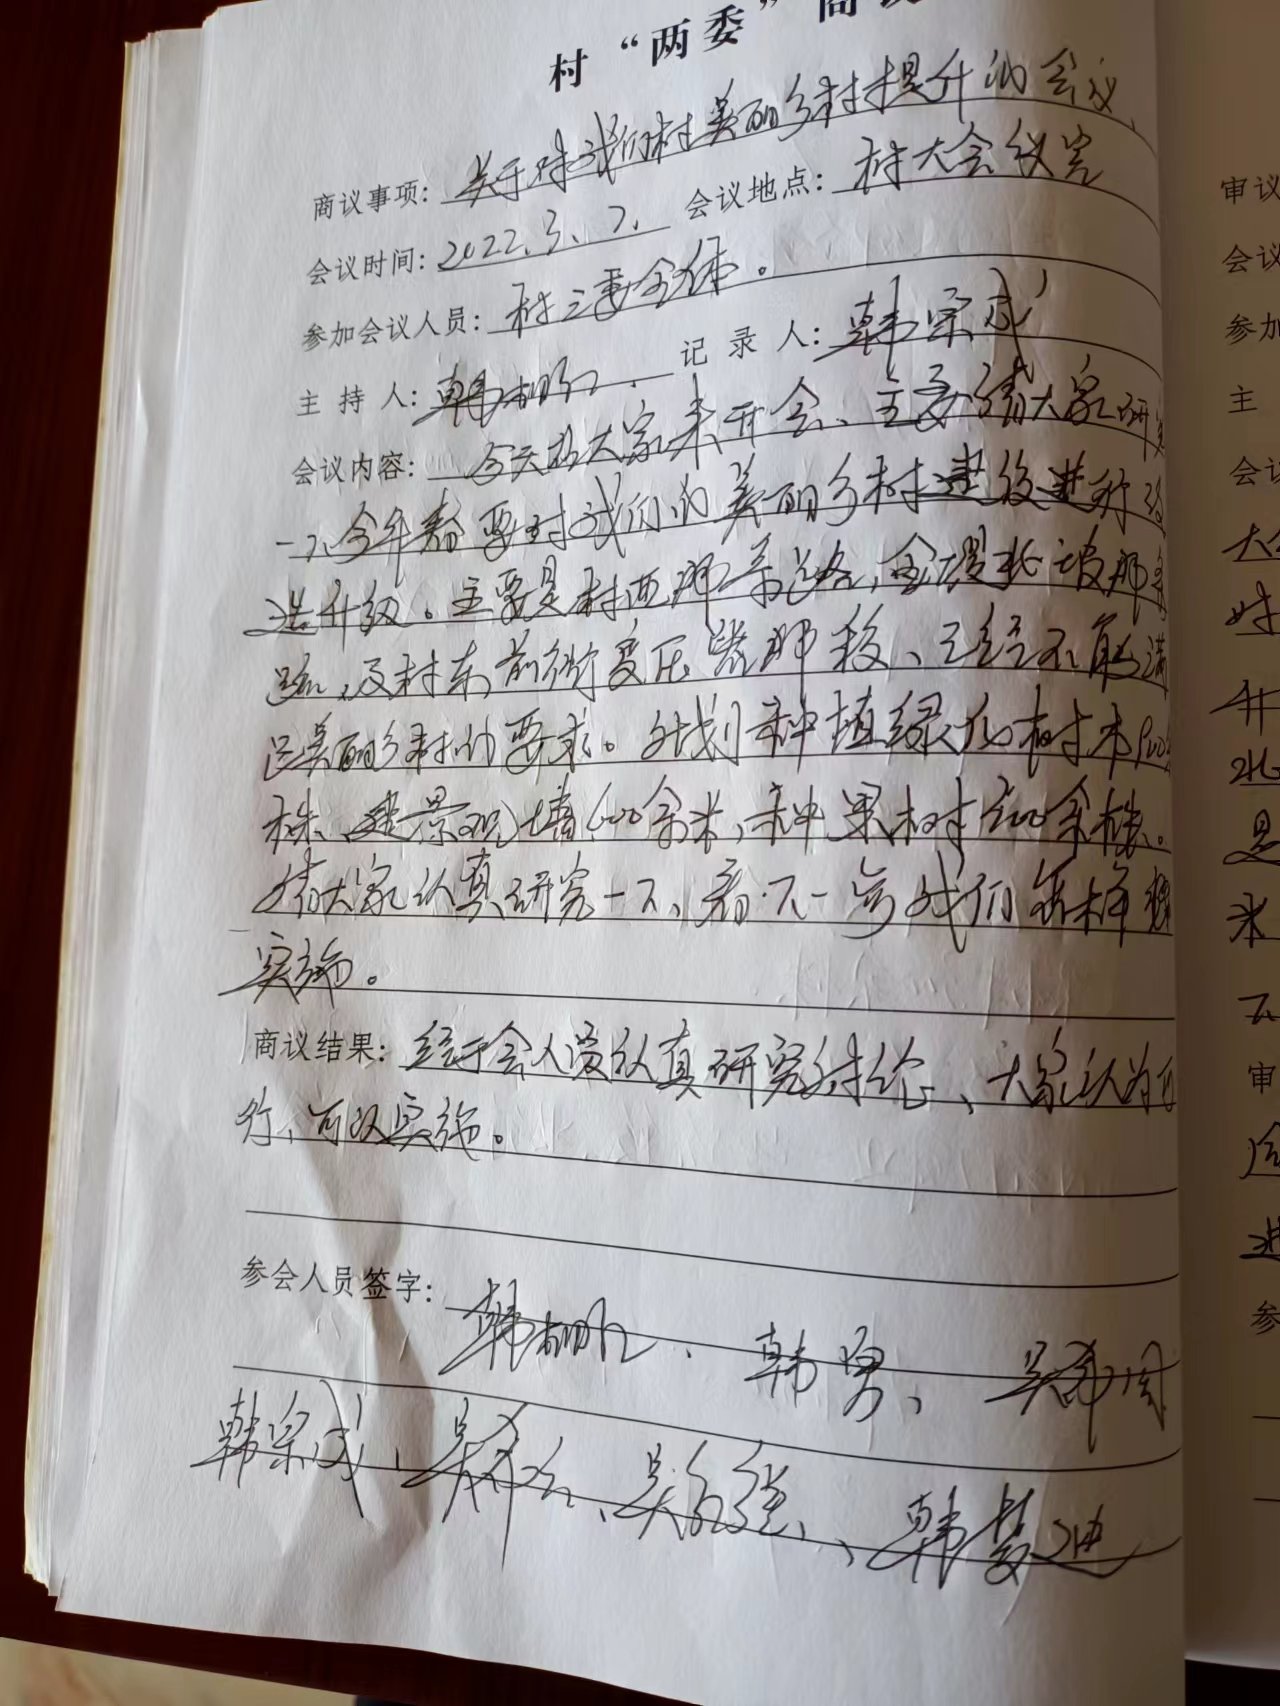 村“两委”商议
商议事项：关于对我们村美丽乡村提升的会议
会议时间：2022.3.2. 会议地点：村大会议室
参加会议人员：村三委全体。
主持人：韩 记录人：韩宗成
会议内容：今天招大家来开会、主要请大家研究
一下、今年春要对我们的美丽乡村建设进行改
造升级。主要是村西那条路，北坡那条
路，及村东前街变压器那段、已经不能满
足美丽乡村的要求。计划种植绿化树木
株、建景观墙600余米，种果树余株。
请大家认真研究一下、看下一步我们怎样
实施。
商议结果：经与会人员认真研究讨论、大家认为可
行、可以实施。
参会人员签字：韩 、韩勇、吴希周
韩宗成、吴希、吴、韩梦迪
审议
会议
参加
主
会议
是
米
下
审
参